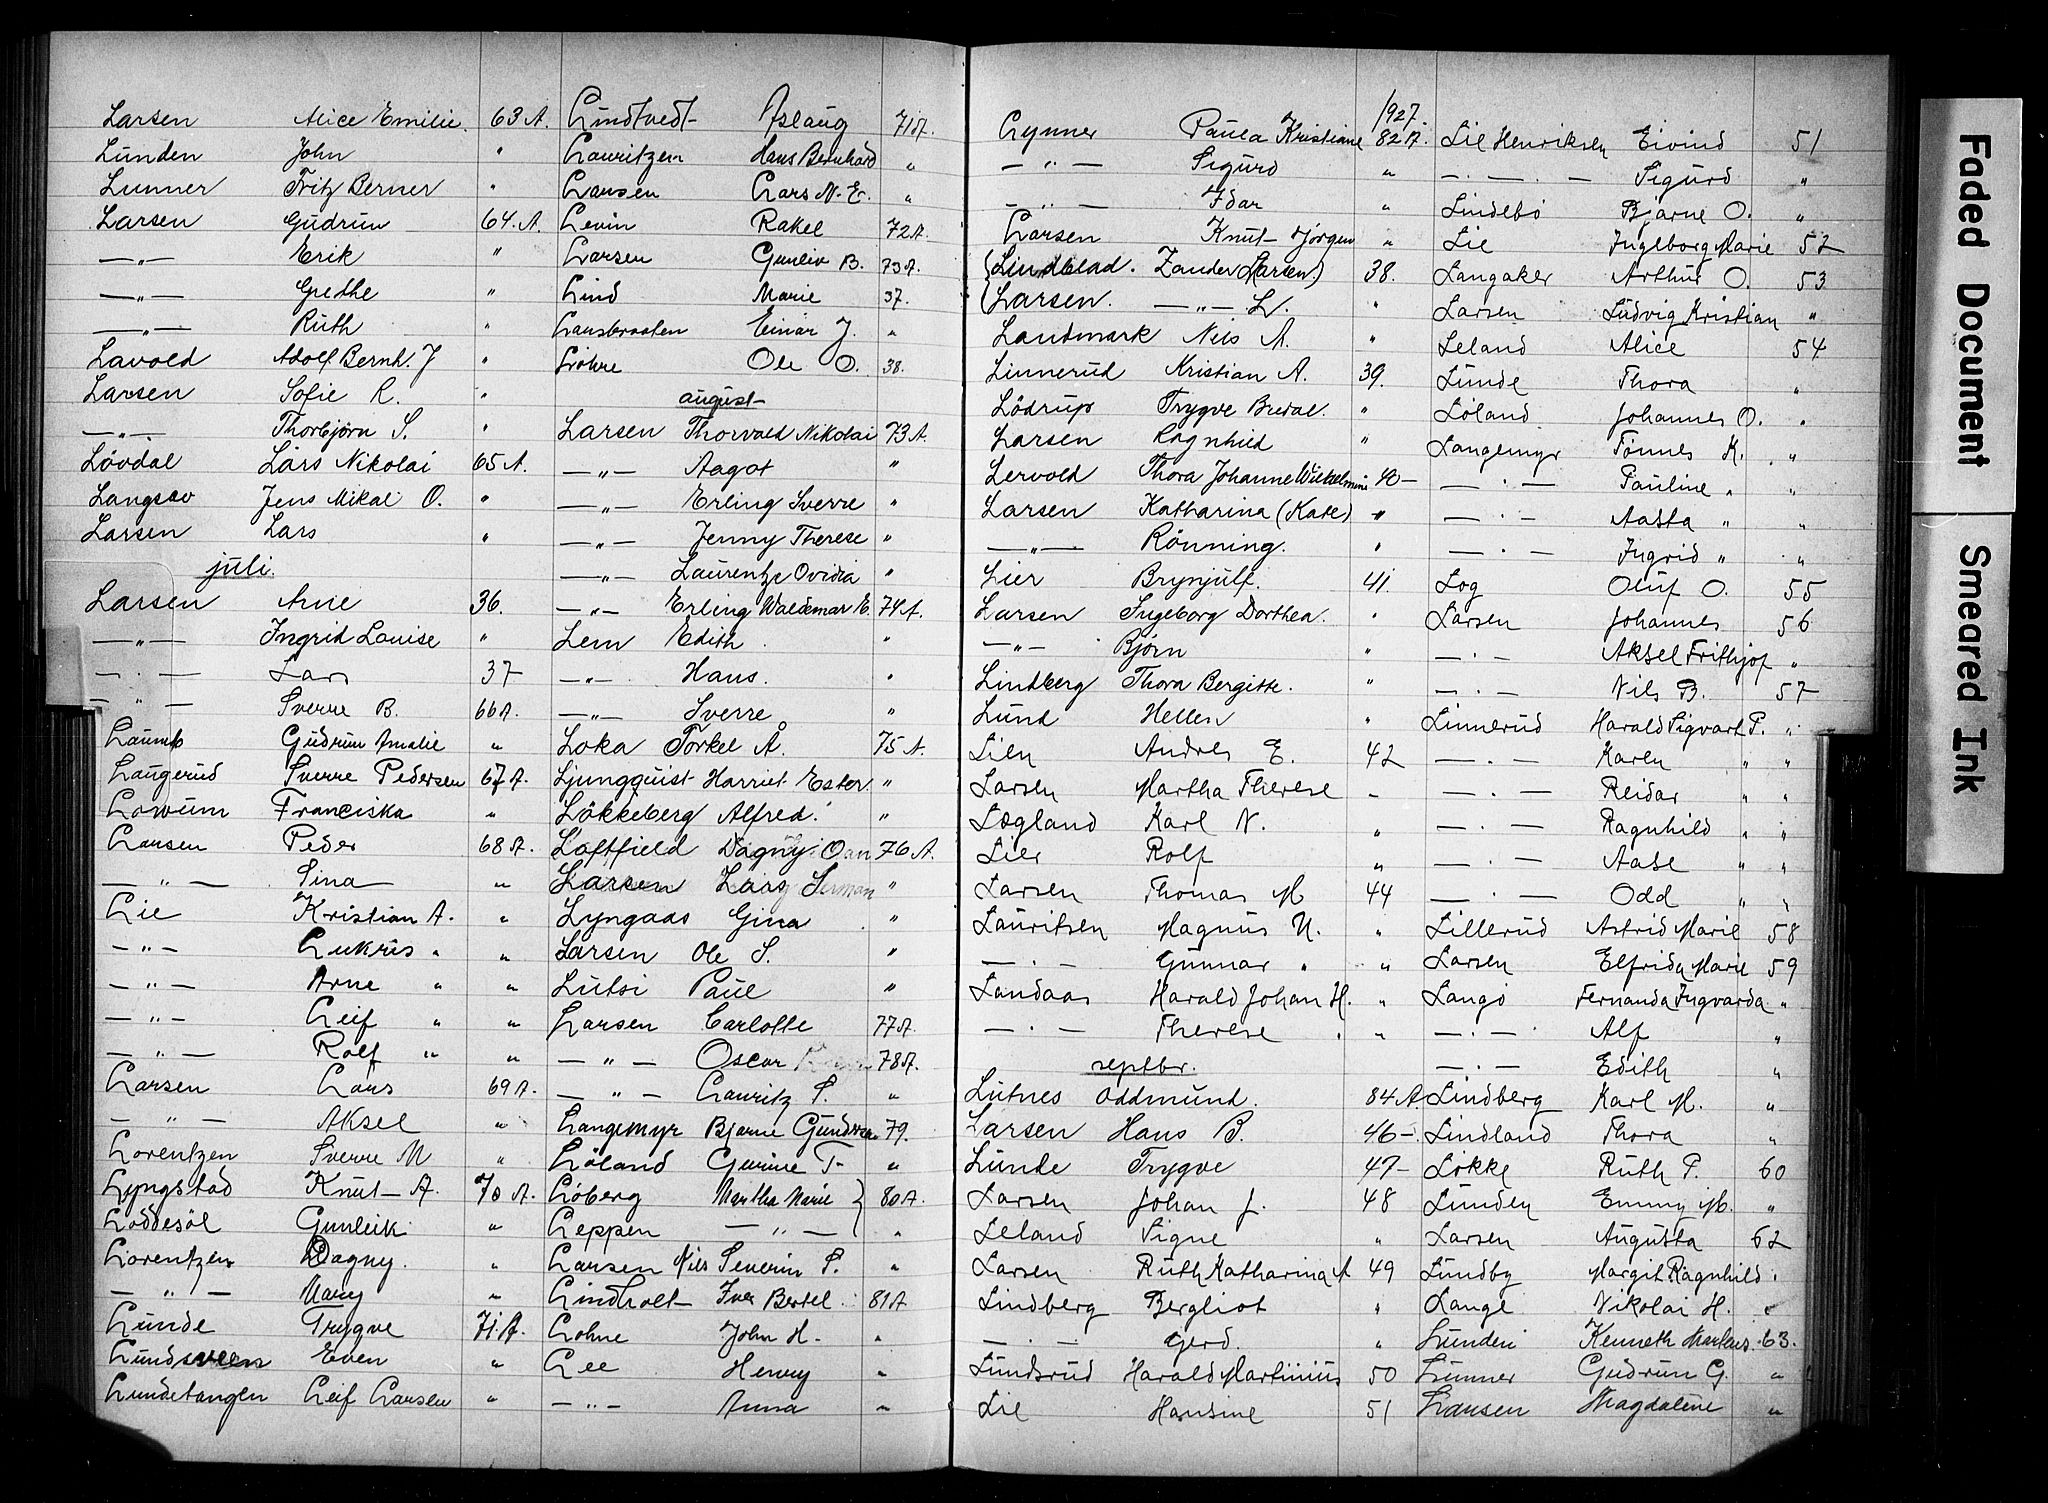 Larsen Alice Emilie. 63 A.
Lunden John "
Lunner Fritz Berner "
Larsen Gudrun 64. A.
—„— Erik "
—„— Grethe "
—„— Ruth "
Lavold Adolf Bernh. J "
Larsen Sofie R. "
—„— Thorbjörn S. "
Lövdal Lars Nikolai 65 A.
Langsav Jens Mikal O. "
Larsen Lars "
juli.
Larsen Arne 36.
—„— Ingrid Louise "
—„— Lars 37
—„— Sverre B. 66 A.
Gudrun Amalie "
Laugerud Sverre Pedersen 67 A.
Lowum Franciska "
Larsen Peder 68 A.
—„— Sina "
Lie Kristian A. "
—„— Lukris " "
—„— Arne " "
—„— Leif " "
—„— Rolf " "
Larsen Lars 69 A.
—„— Aksel "
Lorentzen Sverre M "
Lyngstad Knut A. 70 A.
Löddesöl Gunleik "
Lorentzen Dagny. "
—„— Mary "
Lunde Trygve 71. A.
Lundsveen Even "
Lundetangen Leif Larsen "
Lindtvedt Aslaug 71 A.
Lauritzen Hans Bernhard "
Larsen Lars N. E. "
Levin Rakel 72 A.
Larsen Gunleiv B. 73 A.
Lind Marie 37.
Larsbraaten Einar J. "
Lohre Ole O. 38.
august
Larsen Thorvald Nikolai 73 A.
—„— Aagot "
—„— Erling Sverre "
—„— Jenny Therese "
—„— Laurentze Ovidia "
—„— Erling Waldemar E. 74 A.
Lem Edith "
—„— Hans. "
—„— Sverre "
Loka Torkel Å. 75 A.
Ljungquist Harriet Ester. "
Lökkeberg Alfred. "
Loftfield Dagny 76 A.
Larsen Lars "
Lyngaas Gina "
Larsen Ole S. "
Lutsi Paul "
Larsen Carlotte 77 A.
—„— Oscar 78 A.
—„— Lauritz S. "
Langemyr Bjarne 79.
Löland Gurine T. "
Löberg Martha Marie } 80 A.
Leppen —„— } "
Larsen Nils Severin S. "
Lindholt Iver Bertel 81 A
Lohne John H. "
Lee Henry "
—„— Anna "
1927.
Lynner Paula Kristiane 82 A.
—„— Sigurd "
—„— Idar "
Larsen Knut Jörgen "
(Lindblad. Zander (Larsen) 38.
(Larsen. —„— L. "
Landmark Nils A. "
Linnerud Kristian A. 39.
Lödrup Trygve Bredal. "
Larsen Ragnhild "
Lervold Thora Johanne Wilhelmine 40—
Larsen Katharina (Kate) "
—„— Rönning. "
Lier Brynjulf. 41.
Larsen Ingeborg Dorthea. "
—„— Björn "
Lindberg Thora Bergitte. "
Lund Hellen "
Lien Andres E. 42
Larsen Martha Therese "
Lægland Karl N. "
Lier Rolf "
Larsen Thomas M 44
Lauritsen Magnus N. "
—„— Gunnar " "
Landaas Harald Johan H. "
—„— Therese " "
septbr.
Lutnes Oddmund. 84 A.
Larsen Hans B. 46—
Lunde Trygve 47—
Larsen Johan J. 48
Leland Signe "
Larsen Ruth Katharina A 49
Lindberg Bergliot "
—„— Gerd. "
Lundsrud Harald Martinius 50
Lie Hansine 51
Lie Henriksen Eivind 51
—„— Sigurd "
Lindebö Bjarne O. "
Lie Ingeborg Marie 52
Langaker Arthur O. 53
Larsen Ludvig Kristian "
Leland Alice 54
Lunde Thora "
Löland Johannes O. "
Langemyr Tönnes K. "
—„— Pauline " "
—„— Aasta " "
—„— Ingrid " "
Log Oluf O. 55
Larsen Johannes 56
—„— Aksel Frithjof "
—„— Nils B. 57
Linnerud Harald Sigvart P. "
—„— Karen " "
—„— Reidar " "
—„— Ragnhild " "
—„— Aase " "
—„— Odd " "
Lillerud Astrid Marie 58
Larsen Elfrida Marie 59
Langö Fernanda Ingvarda "
—„— Alf "
—„— Edith "
Lindberg Karl M. "
Lindland Thora "
Lökke Ruth P. 60
Lunden Emmy M. "
Larsen Augusta 62
Lundby Margit Ragnhild "
Lange Nikolai H. "
Lunden Kenneth 63.
Lunner Gudrun G. "
Larsen Magdalene "
Faded Document
Smeared Ink